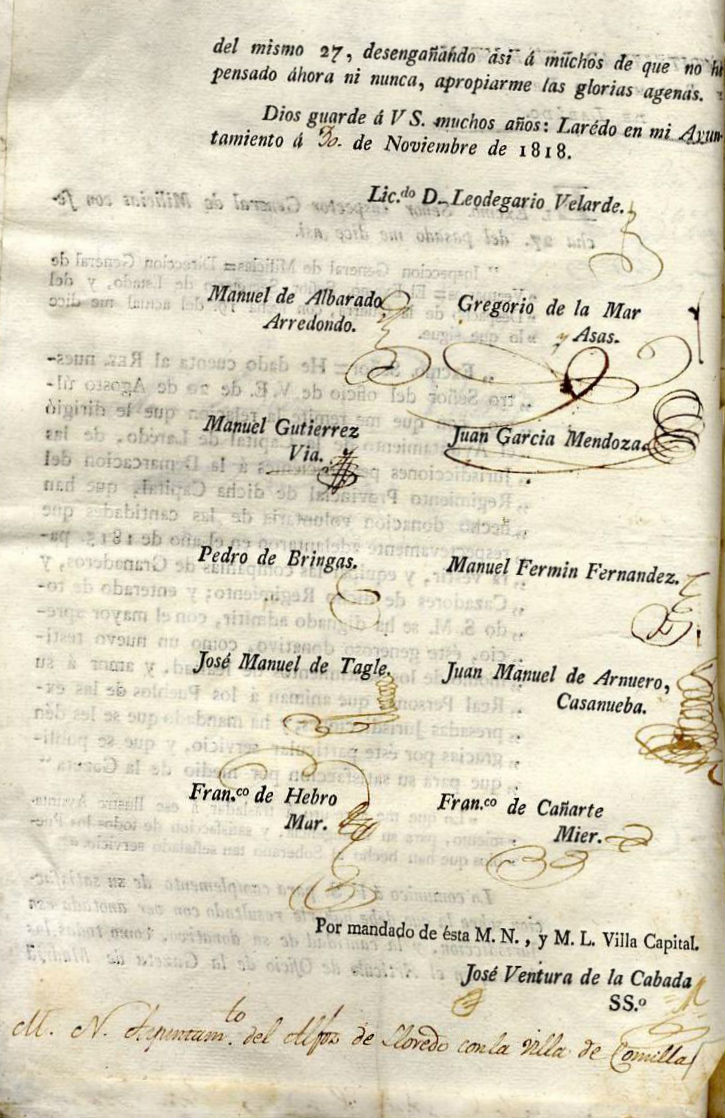 del mismo 27, desengañando ási á muchos de que no h
pensado áhora ni nunca, apropiarme las glorias agenas.
Dios guarde á VS. muchos años: Larédo en mi Ayun-
tamiento á 30. de Noviembre de 1818.
Lic.do D. Leodegario Velarde.
Manuel de Albarado
Arredondo.
Gregorio de la Mar
y Asas.
Manuel Gutierrez
Via.
Juan Garcia Mendoza.
Pedro de Bringas.
Manuel Fermin Fernandez.
José Manuel de Tagle.
Juan Manuel de Arnuero,
Casanueba.
Fran.co de Hebro
Mar.
Fran.co de Cañarte
Mier.
Por mandado de ésta M. N., y M. L. Villa Capital.
José Ventura de la Cabada
SS.o
M. N. Ayuntam.to del Alfoz de Lloredo con la villa de Comilla